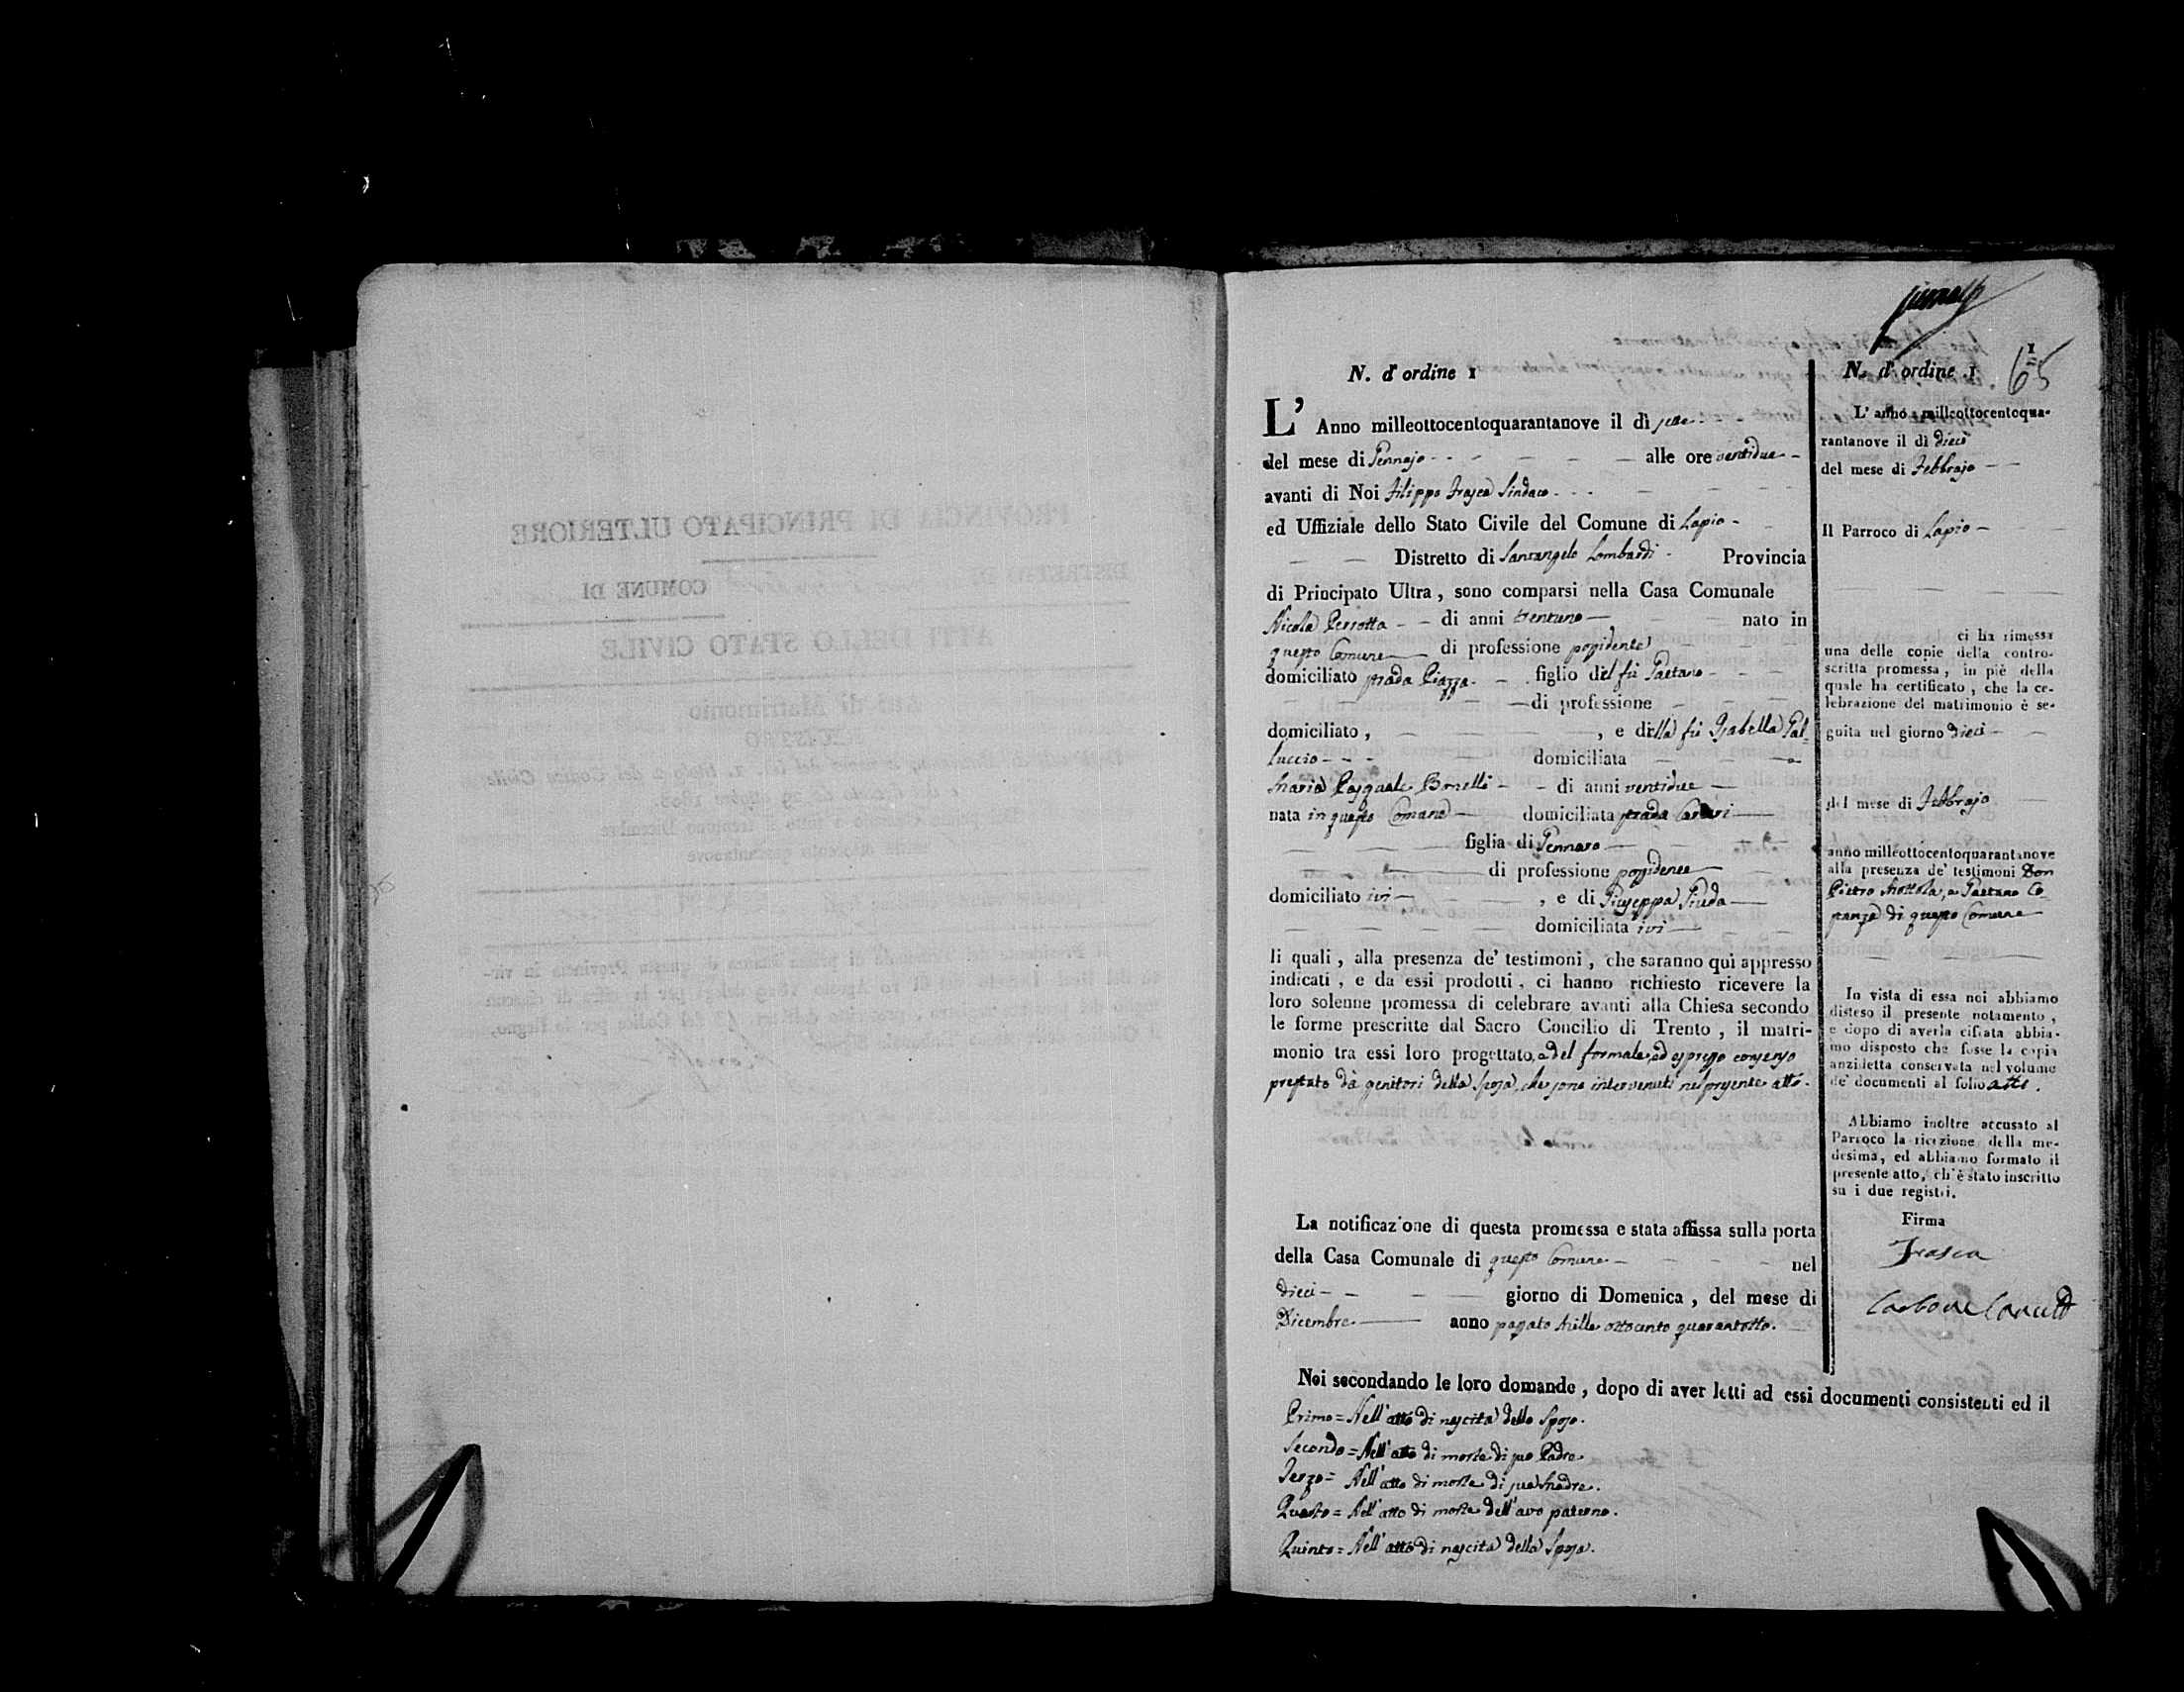 N. d'ordine 1
L'Anno milleottocentoquarantanove il dì sette
del mese di Gennajo alle ore ventidue
avanti di Noi Filippo Frasca Sindaco
ed Uffiziale dello Stato Civile del Comune di Lapio
Distretto di Santangelo Lombardi Provincia
di Principato Ultra, sono comparsi nella Casa Comunale
Nicola Perrotta di anni trentuno nato in
questo Comune di professione possidente
domiciliato strada Piazza figlio del fù Gaetano
di professione
domiciliato, , e della fù Isabella Gal-
luccio domiciliata
Maria Pasquale Bonelli di anni ventidue
nata in questo Comune domiciliata strada
figlia di Gennaro
di professione possidente
domiciliato ivi , e di Giuseppa
domiciliata ivi
li quali, alla presenza de' testimoni, che saranno quì appresso
indicati, e da essi prodotti, ci hanno richiesto ricevere la
loro solenne promessa di celebrare avanti alla Chiesa secondo
le forme prescritte dal Sacro Concilio di Trento, il matri-
monio tra essi loro progettato, a del formale, ed espresso consenso
prestato dà genitori della sposa, che sono intervenuti nel presente atto.
La notificazione di questa promessa e stata affissa sulla porta
della Casa Comunale di questo Comune nel
dieci giorno di Domenica, del mese di
Dicembre anno passato Mille ottocento quarantotto.
Noi secondando le loro domande, dopo di aver letti ad essi documenti consistenti ed il
Primo = Nell'atto di nascita dello Sposo.
Secondo = Nell'atto di morte di suo Padre.
Terzo = Nell'atto di morte di sua Madre.
Quarto = Nell'atto di morte dell'avo paterno.
Quinto = Nell'atto di nascita della Sposa.
1
N. d'ordine 1
65
L'anno milleottocentoqua-
rantanove il dì dieci
del mese di Febbrajo
Il Parroco di Lapio
ci ha rimessa
una delle copie della contro-
scritta promessa, in piè della
quale ha certificato, che la ce-
lebrazione del matrimonio è se-
guita nel giorno dieci
del mese di Febbrajo
anno milleottocentoquarantanove
alla presenza de' testimoni Don
Pietro Mottola, e Gaetano Co-
stanza di questo Comune
In vista di essa noi abbiamo
disteso il presente notamento,
e dopo di averla cifrata abbia-
mo disposto che fosse la copia
anzidetta conservata nel volume
de' documenti al folio atti.
Abbiamo inoltre accusato al
Parroco la ricezione della me-
desima, ed abbiamo formato il
presente atto, ch'è stato inscritto
su i due registri.
Firma
Frasca
Carbone
PROVINCIA DI PRINCIPATO ULTERIORE
DISTRETTO DI
COMUNE DI
ATTI DELLO STATO CIVILE
Atti di Matrimonio